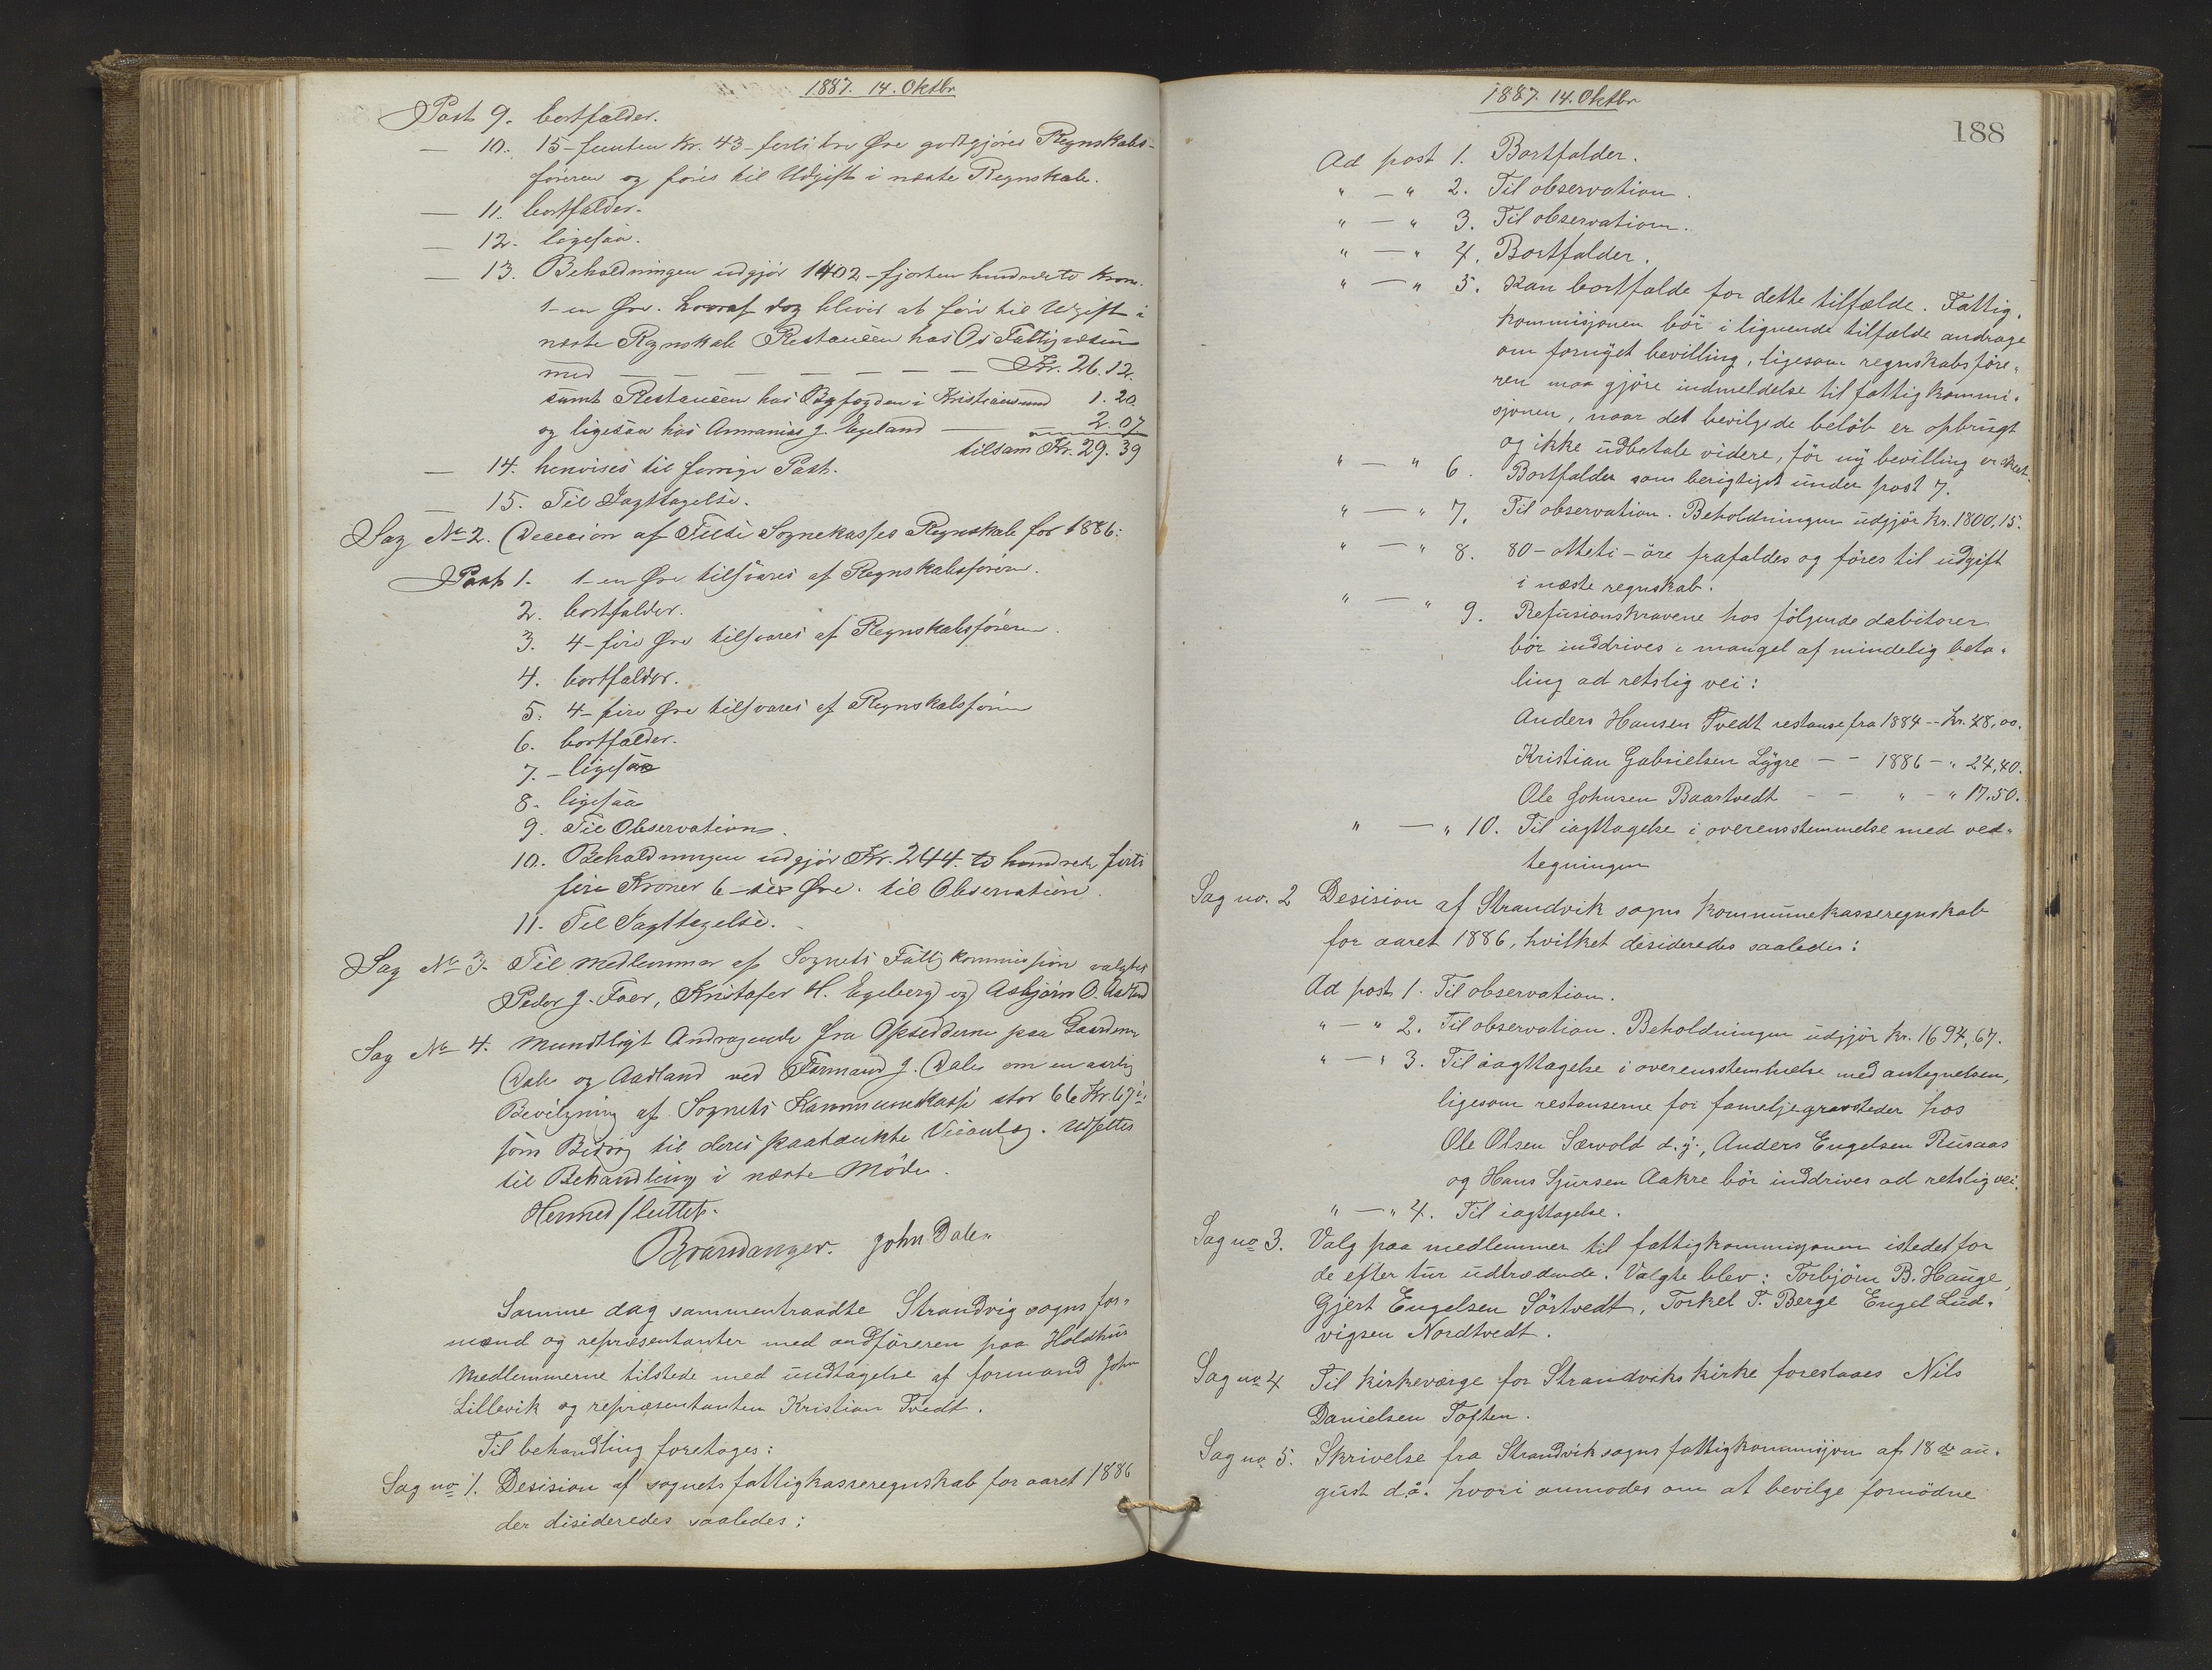 1887. 14. Oktbr
Post 9. bortfalder.
— 10. 15 – femten Kr. 43 – forti tre Øre godtgjöres Regnskabs-
föreren og föres til Udgift i næste Regnskab.
— 11. bortfalder.
— 12. ligesaa.
— 13. Beholdningen udgjör 1402 – fjorten hundrede to Kron.
1 – en Øre. hvoraf dog bliver at före til Udgift i
næste Regnskab Restancen hos Os Fattigvæsen
med — — — — — — — Kr. 26.12.
samt Restancen hos Byfogden i Kristiansund 1.20
og ligesaa hos Annanias J. Egeland — 2.07
tilsam Kr. 29.39
— 14. henvises til forrige Post.
— 15. Til Iagttagelse.
Sag No 2. Decision af Fuse Sognekasses Regnskab for 1886:
Post 1. 1 – en Øre tilsvares af Regnskabsföreren.
2. bortfalder.
3. 4 – fire Øre tilsvares af Regnskabsföreren.
4. bortfalder.
5. 4 – fire Øre tilsvares af Regnskabsföreren
6. bortfalder.
7. – ligesaa
8. ligesaa
9. Til Observation.
10. Beholdningen udgjör Kr. 244. to hundrede firti
fire Kroner 6 – sex Øre. til Observation.
11. Til Iagttagelse.
Sag No 3. Til Medlemmer af Sognets Fattigkommission valgtes
Peder J. Foer, Kristofer H. Egeberg og Asbjörn O. Aadland
Sag No 4. Mundtligt Andragende fra Opsidderne paa Gaardene
Dale og Aadland ved Formand J. Dale om en aarlig
Bevilgning af Sognets Kommunekasse stor 66 Kr. 67 ö.
som Bidrag til deres paatænkte Veianlæg. Udsættes
til Behandling i næste Möde.
Hermed sluttet.
Brandanger. John Dale.
Samme dag sammentraadte Strandvig sogns for-
mænd og repræsentanter med ordföreren paa Holdhus
Medlemmerne tilstede med undtagelse af formand John
Lillevik og repræsentanten Kristian Tvedt.
Til behandling foretoges:
Sag no 1. Desision af sognets fattigkasseregnskab for aaret 1886
der desideredes saaledes:
1887. 14. Oktbr
188
Ad post 1. Bortfalder.
" — " 2. Til observation.
" — " 3. Til observation.
" — " 4. Bortfalder.
" — " 5. Kan bortfalde for dette tilfælde. Fattig-
kommisjonen bör i lignende tilfælde andrage
om fornyet bevilling, ligesom regnskabsföre-
ren maa gjöre indmeldelse til fattigkommi-
sjonen, naar det bevilgede belöb er opbrugt
og ikke udbetale videre, för ny bevilling er skeet.
" — " 6. Bortfalder som berigtiget under post 7.
" — " 7. Til observation. Beholdningen udgjör kr. 1800,15.
" — " 8. 80 – otteti – öre frafaldes og föres til udgift
i næste regnskab.
" — " 9. Refusionskravene hos fölgende debitorer
bör inddrives i mangel af mindelig beta-
ling ad retslig vei:
Anders Hansen Tvedt restanse fra 1884 -- kr. 48,00.
Kristian Gabrielsen Lygre — - 1886 - " 24,40.
Ole Johnsen Baartvedt - — " - " 17.50.
" — " 10. Til iagttagelse i overensstemmelse med ved-
tegningen
Sag no. 2 Desision af Strandvik sogns kommunekasseregnskab
for aaret 1886, hvilket desideredes saaledes:
Ad post 1. Til observation.
" — " 2. Til observation. Beholdningen udgjör kr. 1694,67.
" — " 3. Til iagttagelse i overensstemmelse med antegnelsen,
ligesom restanserne for fameljegravsteder hos
Ole Olsen Sævold d.y., Anders Engelsen Rusaas
og Hans Sjursen Aakre bör inddrives ad retslig vei.
" — " 4. Til iagttagelse.
Sag no 3. Valg paa medlemmer til fattigkommisjonen istedet for
de efter tur udtrædende. Valgte blev: Torbjörn B. Hauge,
Gjert Engelsen Sörtvedt, Torkel T. Berge Engel Lud-
vigsen Nordtvedt.
Sag no 4 Til kirkeværge for Strandviks kirke foreslaaes Nils
Danielsen Toften.
Sag no 5. Skrivelse fra Strandvik sogns fattigkommisjon af 18de au-
gust d.å. hvori anmodes om at bevilge fornödne